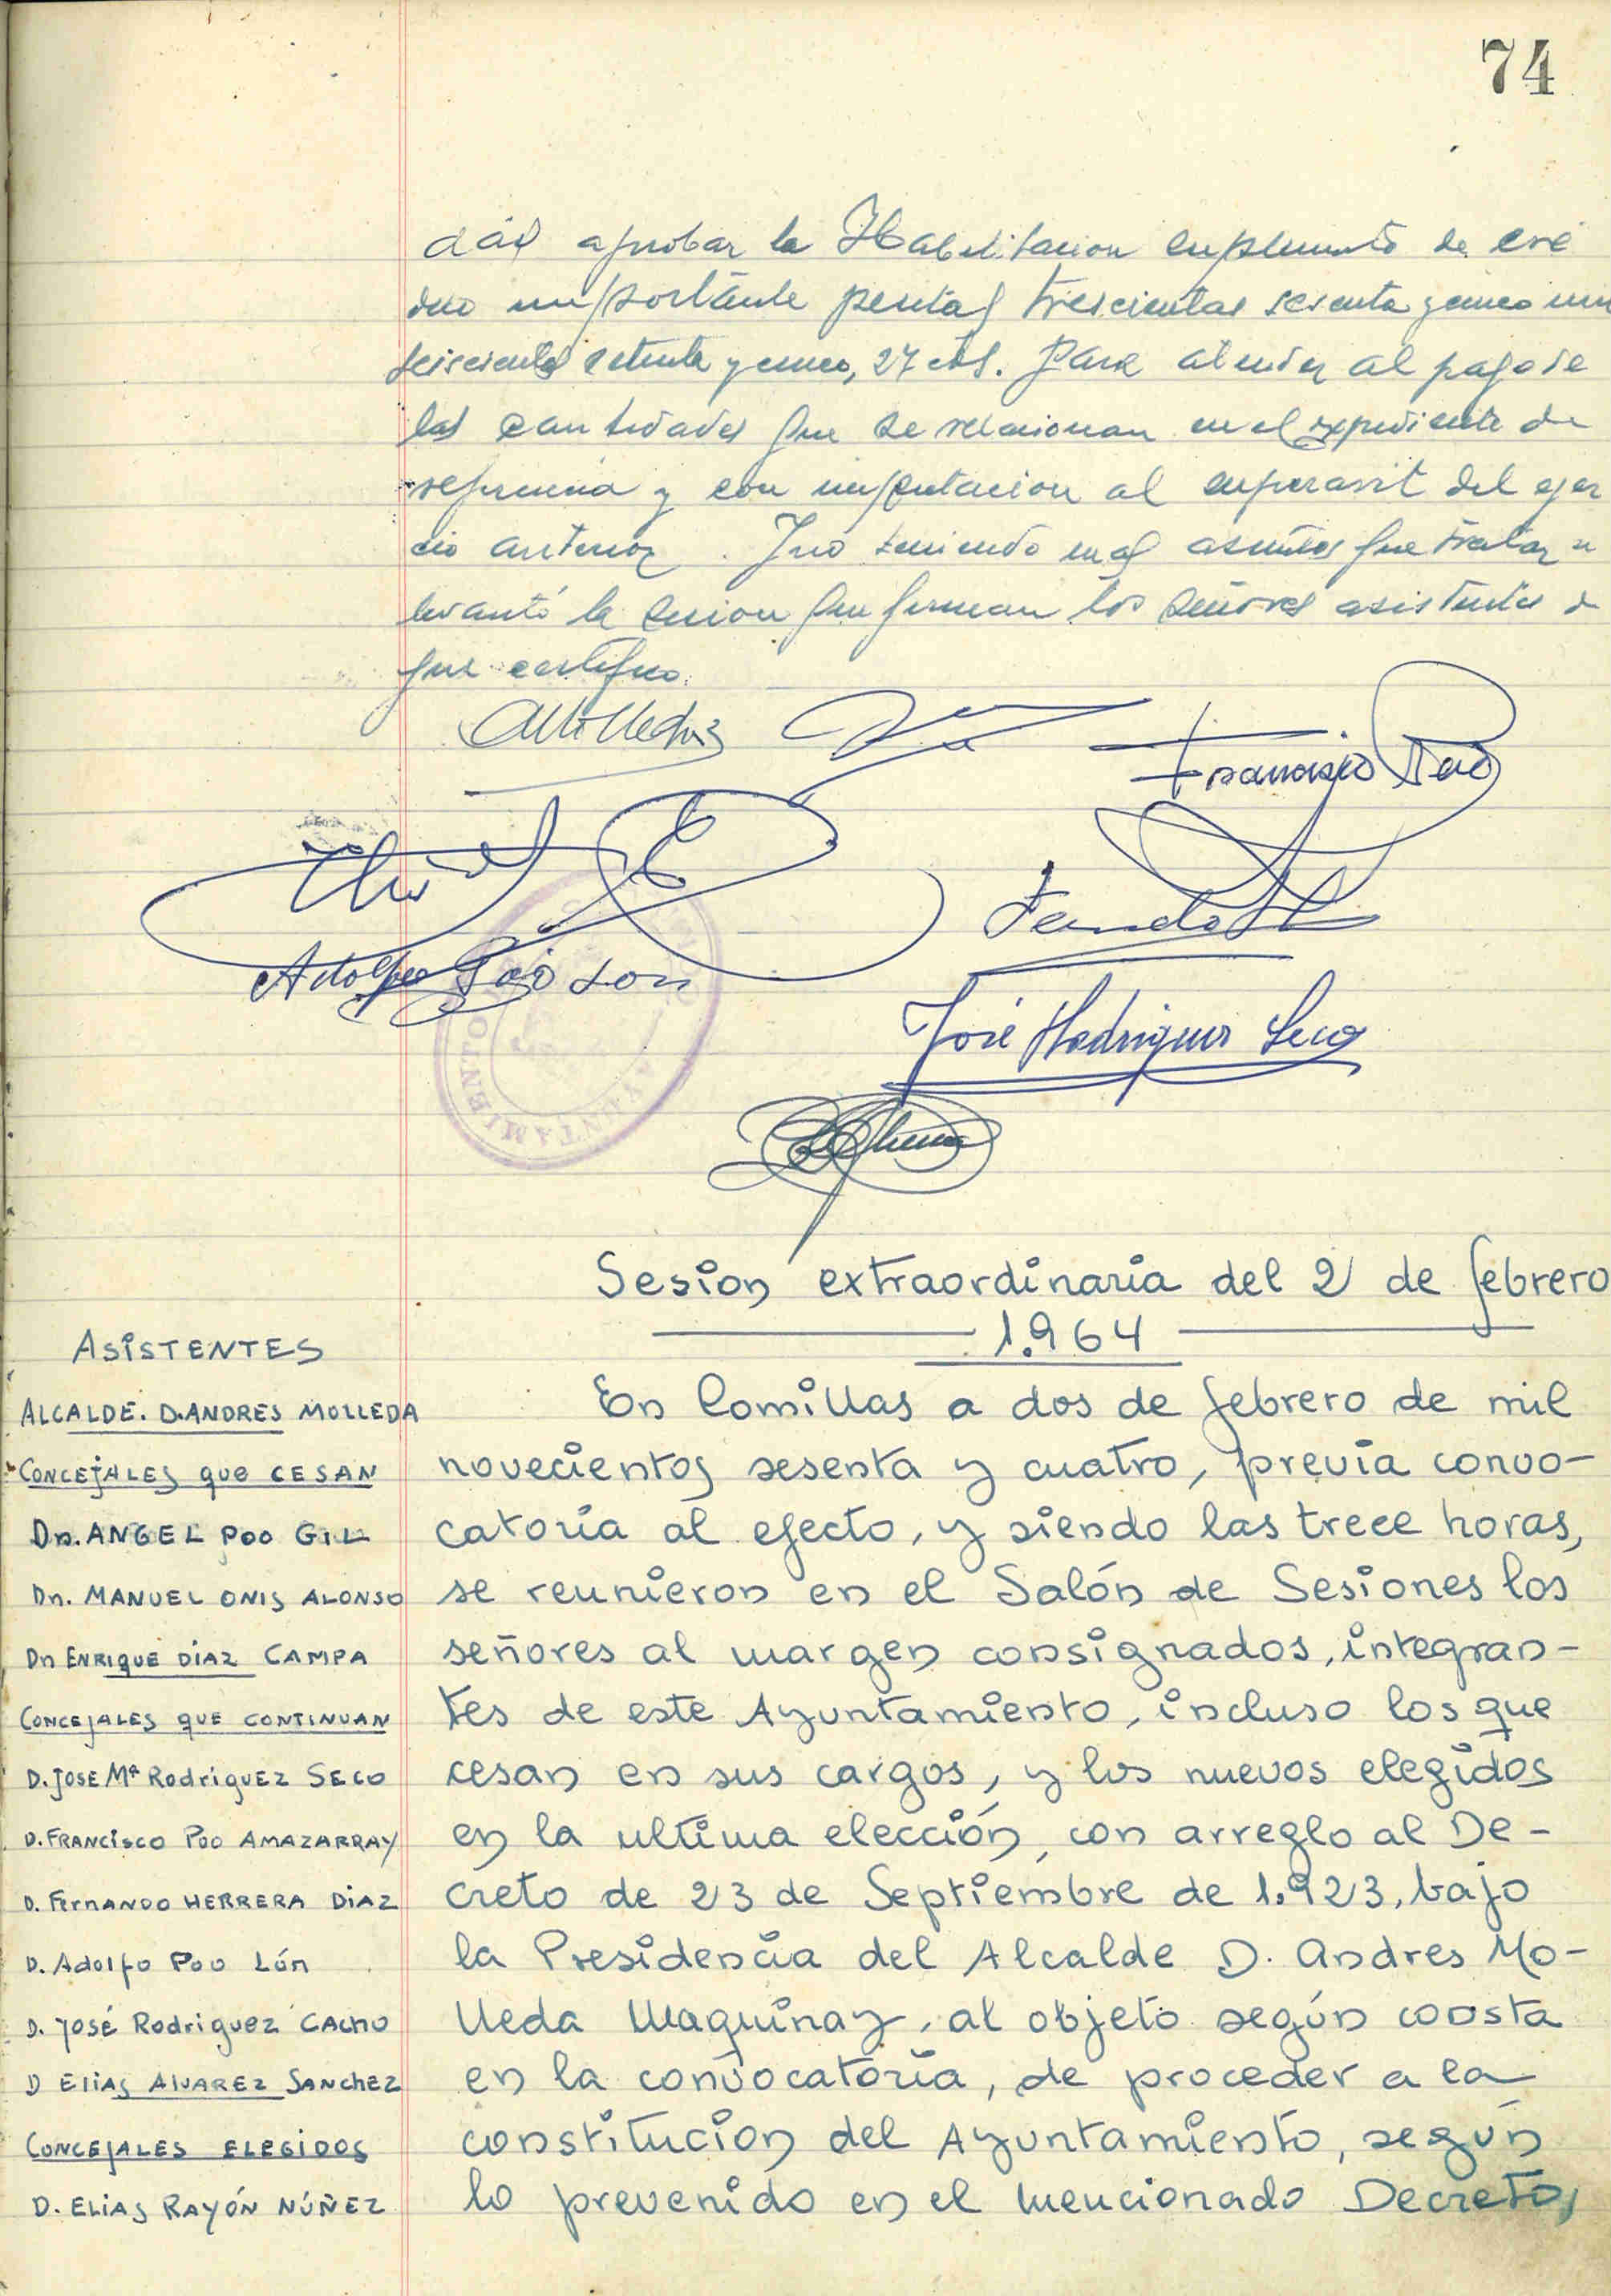 74
dad aprobar la Habilitacion suplemento de cré
dito importante pesetas trescientas sesenta y cinco mil
seiscientas setenta y cinco, 27 cts. Para atender al pago de
las cantidades que se relacionan en el expediente de
referencia y con imputacion al superavit del ejer
cio anterior. Y no teniendo mas asuntos que tratar se
levantó la sesion que firman los señores asistentes de
que certifico.
Francisco Poo
Adolfo Poo Lon
José Rodriguez Seco
AYUNTAMIENTO
Sesion extraordinaria del 2 de febrero
1.964
ASISTENTES
ALCALDE. D. ANDRES MOLLEDA
CONCEJALES que CESAN
Dn. ANGEL POO GIL
Dn. MANUEL ONIS ALONSO
Dn ENRIQUE DÍAZ CAMPA
CONCEJALES QUE CONTINUAN
D. JOSE Mª RodríguEZ SECO
D. FRANCISCO POO AMAZARRAY
D. FERNANDO HERRERA DIAZ
D. Adolfo Poo Lón
D. José Rodriguez CACHO
D ELIAS ALVAREZ SANCHEZ
CONCEJALES ELEGIDOS
D. ELIAS RAYÓN NÚÑEZ
En Comillas a dos de febrero de mil
novecientos sesenta y cuatro, previa convo-
catoria al efecto, y siendo las trece horas,
se reunieron en el Salón de Sesiones los
señores al margen consignados, integran-
tes de este Ayuntamiento, incluso los que
cesan en sus cargos, y los nuevos elegidos
en la ultima elección, con arreglo al De-
creto de 23 de Septiembre de 1.923, bajo
la Presidencia del Alcalde D. Andres Mo-
lleda Maquinay, al objeto según consta
en la convocatoria, de proceder a la
constitución del Ayuntamiento, según
lo prevenido en el mencionado Decreto,